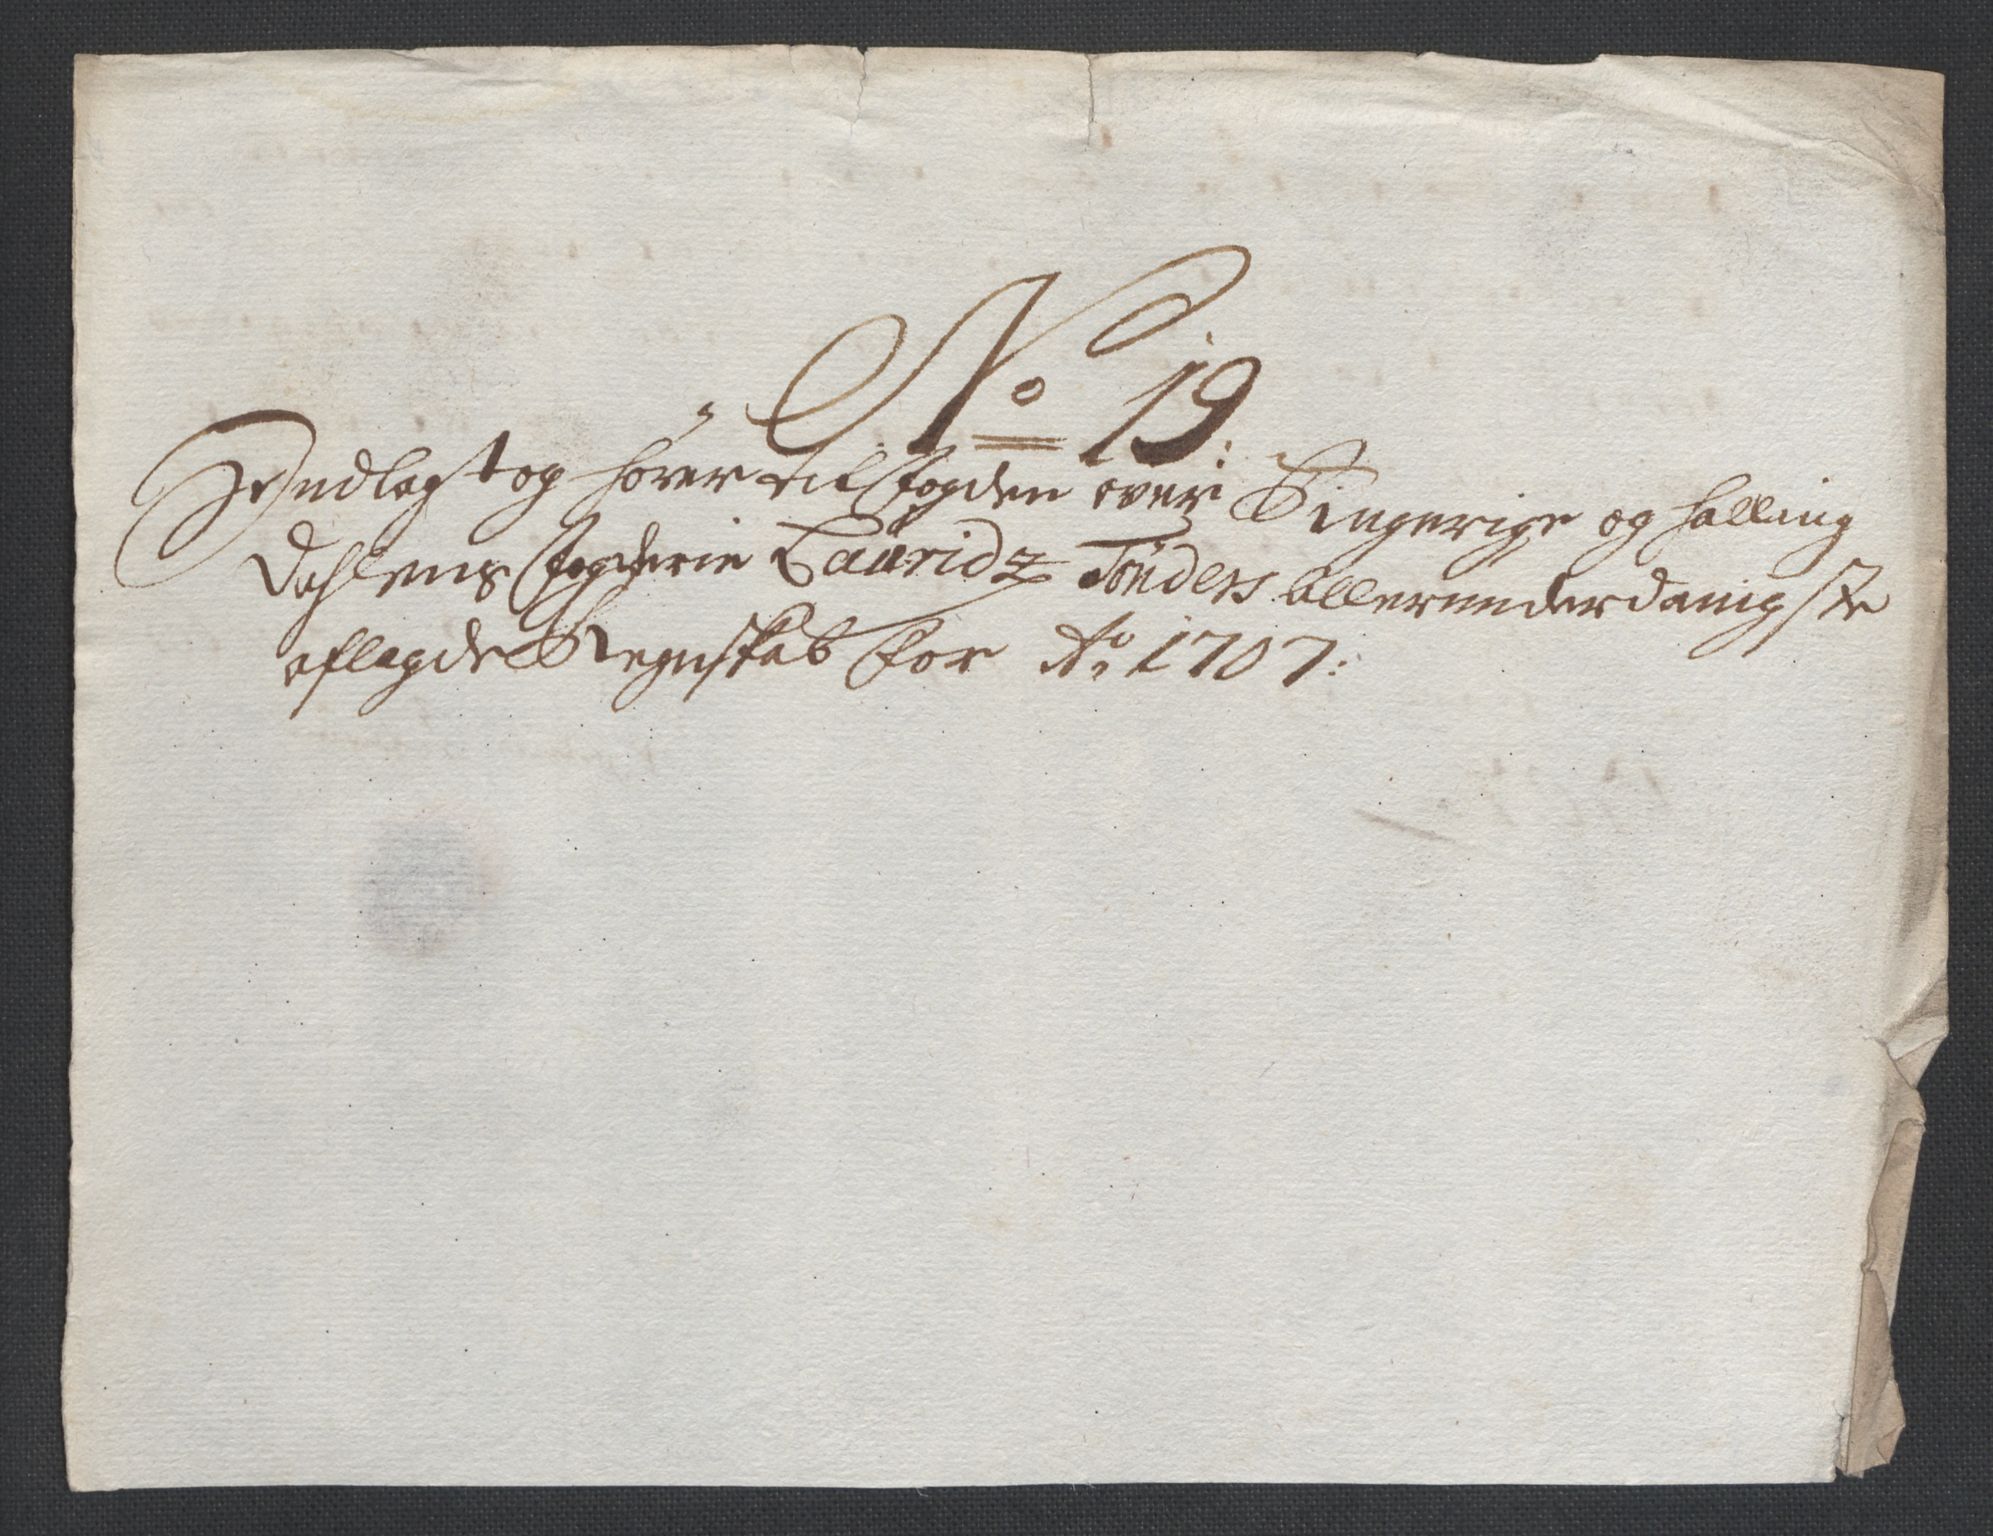 No 19:
Indlagt og hører til Fogden over Ringerige og Halling
Dahlens Fogderie Lauridz Tønders allerunderdanigste
aflagde Regnskab for Ao 1707: